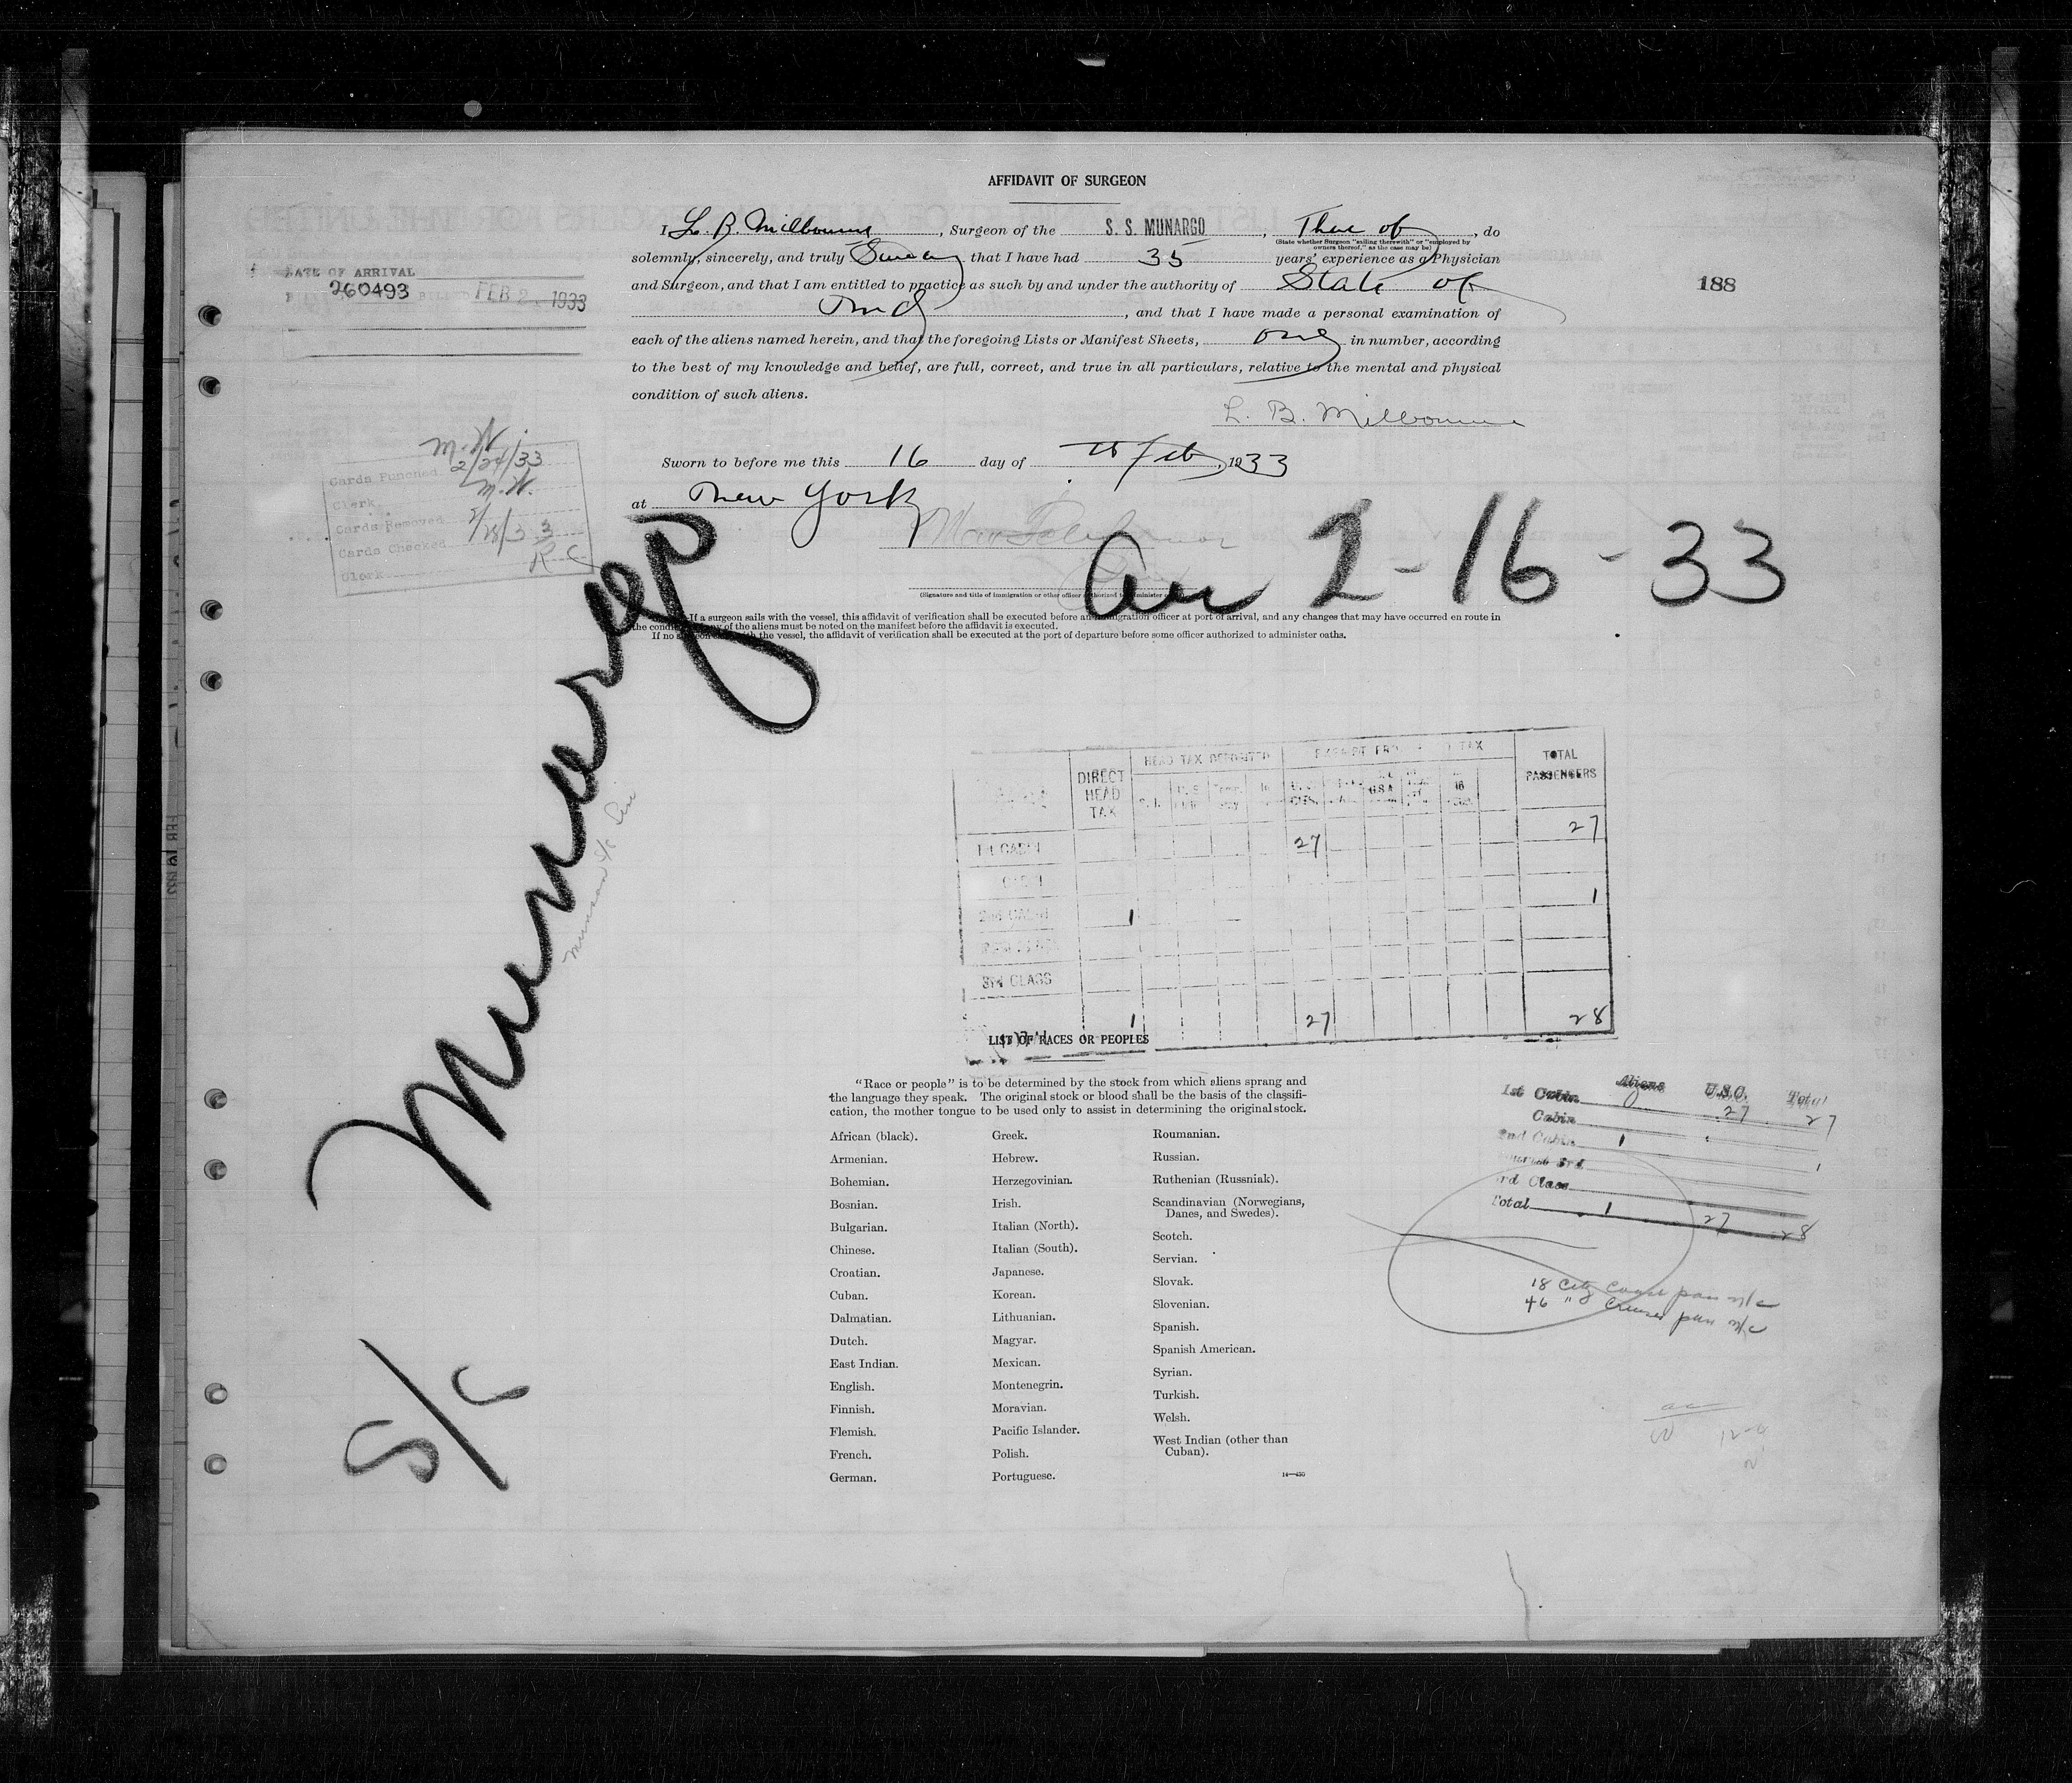 AFFIDAVIT OF SURGEON
I, L. B. Milbourne, Surgeon of the S. S. MUNARGO, There of, do
(State whether Surgeon "sailing therewith" or "employed by
owners thereof," as the case may be)
solemnly, sincerely, and truly Swear that I have had 35 years' experience as a Physician
and Surgeon, and that I am entitled to practice as such by and under the authority of State of
Md, and that I have made a personal examination of
each of the aliens named herein, and that the foregoing Lists or Manifest Sheets, one in number, according
to the best of my knowledge and belief, are full, correct, and true in all particulars, relative to the mental and physical
condition of such aliens.
L. B. Milbourne
Sworn to before me this 16 day of Feb, 1933
at New York
(Signature and title of immigration or other officer authorized to administer
If a surgeon sails with the vessel, this affidavit of verification shall be executed before an immigration officer at port of arrival, and any changes that may have occurred en route in
the condition of any of the aliens must be noted on the manifest before the affidavit is executed.
If no surgeon sails with the vessel, the affidavit of verification shall be executed at the port of departure before some officer authorized to administer oaths.
DATE OF ARRIVAL
260493 FEB 2 . 1933
188
M. W.
Cards Punched 2/24/33
Clerk M. W.
Cards Removed
Cards Checked 2/28/33
Clerk R C
Arr 2-16-33
Munargo
Munson S/S Line
S/S
DIRECT HEAD TAX
HEAD TAX DEPOSITED
TAX
TOTAL PASSENGERS
1st CABIN 27 27
CABIN
2nd CABIN 1 1
3rd CLASS
1 27 28
LIST OF RACES OR PEOPLES
"Race or people" is to be determined by the stock from which aliens sprang and
the language they speak. The original stock or blood shall be the basis of the classifi-
cation, the mother tongue to be used only to assist in determining the original stock.
African (black).
Armenian.
Bohemian.
Bosnian.
Bulgarian.
Chinese.
Croatian.
Cuban.
Dalmatian.
Dutch.
East Indian.
English.
Finnish.
Flemish.
French.
German.
Greek.
Hebrew.
Herzegovinian.
Irish.
Italian (North).
Italian (South).
Japanese.
Korean.
Lithuanian.
Magyar.
Mexican.
Montenegrin.
Moravian.
Pacific Islander.
Polish.
Portuguese.
Roumanian.
Russian.
Ruthenian (Russniak).
Scandinavian (Norwegians,
Danes, and Swedes).
Scotch.
Servian.
Slovak.
Slovenian.
Spanish.
Spanish American.
Syrian.
Turkish.
Welsh.
West Indian (other than
Cuban).
Aliens U.S.C. Total
1st Cabin 0 27 27
Cabin
2nd Cabin 1 1
3rd
3rd Class
Total 1 27 28
18 City
46 "